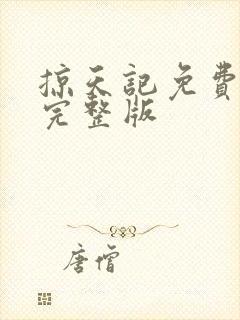 掠天记免費
完整版
唐僧